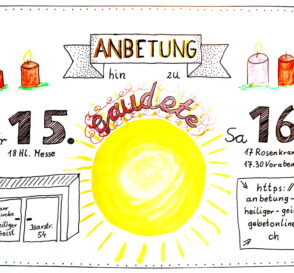 ANBETUNG
hin zu
Gaudete
15.
18 Hl. Messe
Sa 16
17 Rosenkran
17.30 Voraben
Isarstr.
54
https://
anbetung-
heiliger-geis
gebetonline
ch